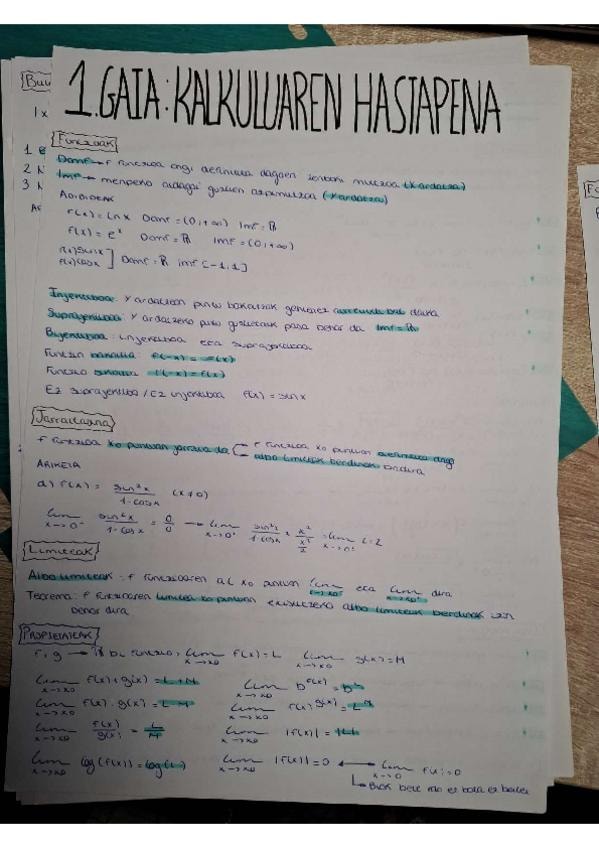 1. GAIA: KALKULUAREN HASTAPENA
Funtzioak
Domf → f funtzioa ongi definitua dagoen zenbaki multzoa (X ardatza)
Imf → menpeko aldagai guztien azpimultzoa (Y ardatza)
ADIBIDEAK
f(x) = ln x Domf = (0,+∞) Imf = ℝ
f(x) = e^x Domf = ℝ Imf = (0,+∞)
f(x) sin x
f(x) cos x ] Domf = ℝ Imf [-1,1]
Injektiboa: Y ardatzean puntu bakoitzak gehienez
Suprajektiboa: Y ardatzeko puntu guztietatik pasa behar da Imf = ℝ
Bijektiboa: injektiboa eta suprajektiboa
Funtzio bakoitia f(-x) = -f(x)
Funtzio bikoitia f(-x) = f(x)
Ez suprajektiboa / Ez injektiboa f(x) = sin x
Jarraitasuna
f funtzioa x0 puntuan jarraia da f funtzioa x0 puntuan definitua ongi
albo limiteak berdinak
ARIKETA
a) f(x) = sin²x / 1-cosx (x≠0)
lim x→0⁻ sin²x / 1-cosx = 0/0 → lim x→0⁺ sin²x / 1-cosx = lim x→0⁺ = 2
Limiteak
Albo limiteak: f funtzioaren x0 puntuan lim x→x0⁻ eta lim x→x0⁺ dira
Teorema: f funtzioaren limitea x0 puntuan existitzeko albo limiteak berdinak izan
behar dira
PROPIETATEAK
f, g → ℝ bi funtzio, lim x→x0 f(x) = L lim x→x0 g(x) = M
lim x→x0 f(x)+g(x) = L+M lim x→x0 b^f(x) = b^L
lim x→x0 f(x)·g(x) = L·M lim x→x0 f(x)^g(x) = L^M
lim x→x0 f(x)/g(x) = L/M lim x→x0 |f(x)| = |L|
lim x→x0 log(f(x)) = log(L) lim x→x0 |f(x)| = 0 ↔ lim x→0 f(x) = 0